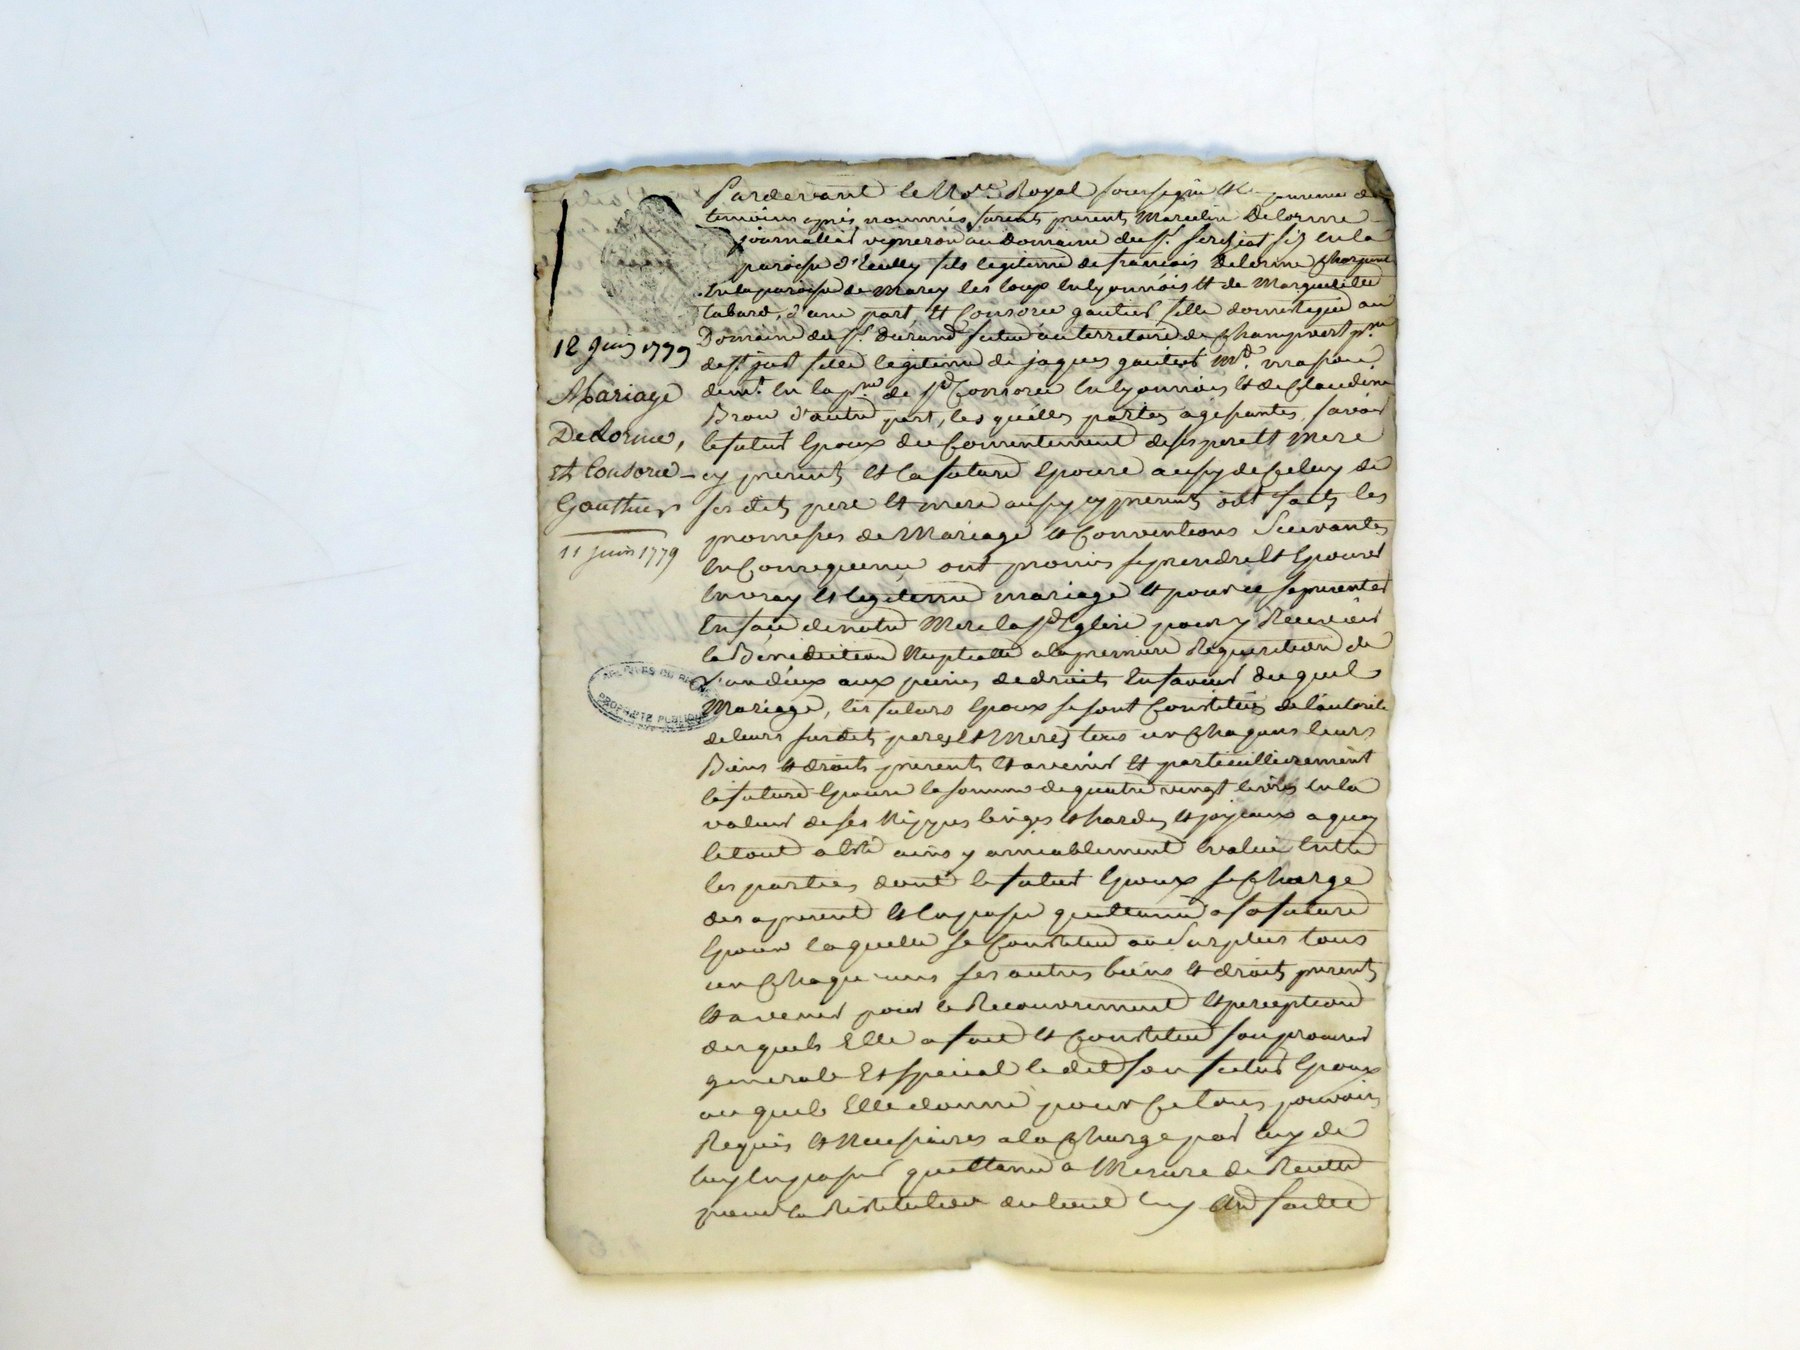 12 Juin 1779
Mariage
Delorme,
Et Consorce
Gauthier
11 Juin 1779
ARCHIVES DU RHÔNE
PROPRIÉTÉ PUBLIQUE
Pardevant le No.re Royal soussigné Et en presence des
temoins après nommés furent présents Marcelin Delorme
journallier vigneron au Domaine du Sr. sis en la
paroisse d'Ecully fils legitime de francois Delorme Charpent.
En la paroisse de Marcy les loups en lyonnois Et de Marguerite
tabard, d'une part, Et Consorce gautier fille domestique au
Domaine du Sr. Durand scitué au territoire de Champvert p.sse
de St. just fille legitime de jaques gautier M.d
demt. En la p.sse de Ste Consorce En lyonnois Et de Claudine
Brou d'autre part, les quelles parties agissantes, savoir
le futur Epoux du Consentement de ses pere Et Mere
cy presents Et la future Epouse aussy de Celuy de
ses dits pere Et mere aussy cy presents ont faits les
promesses de Mariage Et Conventions Suivantes
En Consequence ont promis se prendre Et Epouser
En vray Et legitime mariage Et pour ce se presenter
En face de notre Mere la Ste Eglise pour y Recevoir
la Bénédiction Nuptialle a la premiere Requisition de
l'un d'eux aux peines de droits En faveur du quel
Mariage, les futurs Epoux se sont Constitués de l'autorité
de leurs susdits peres Et Meres tous un Chaquns leurs
Biens Et droits presents Et avenir Et particullierement
la future Epouse la somme de quatre vingt livres En la
valeur de ses Nippes linges Et hardes Et joyeaux a quoy
le tout a Eté ainsy amiablement Evalué Entre
les parties dont le futur Epoux se Charge
des apresent Et En passe quittance a sa future
Epouse laquelle se Constitue au Surplus tous
un Chaqu'uns ses autres biens Et droits presents
Et avenir pour le Recouvrement Et perception
des quels Elle a fait Et Constitué son procureur
generale Et special le dit son futur Epoux
au quel Elle donne pour Ce tous pouvoirs
Requis Et Necessaires a la Charge par luy de
luy En passer quittance a Mesure de Recette
pour la Restitution du tout luy Etre faitte